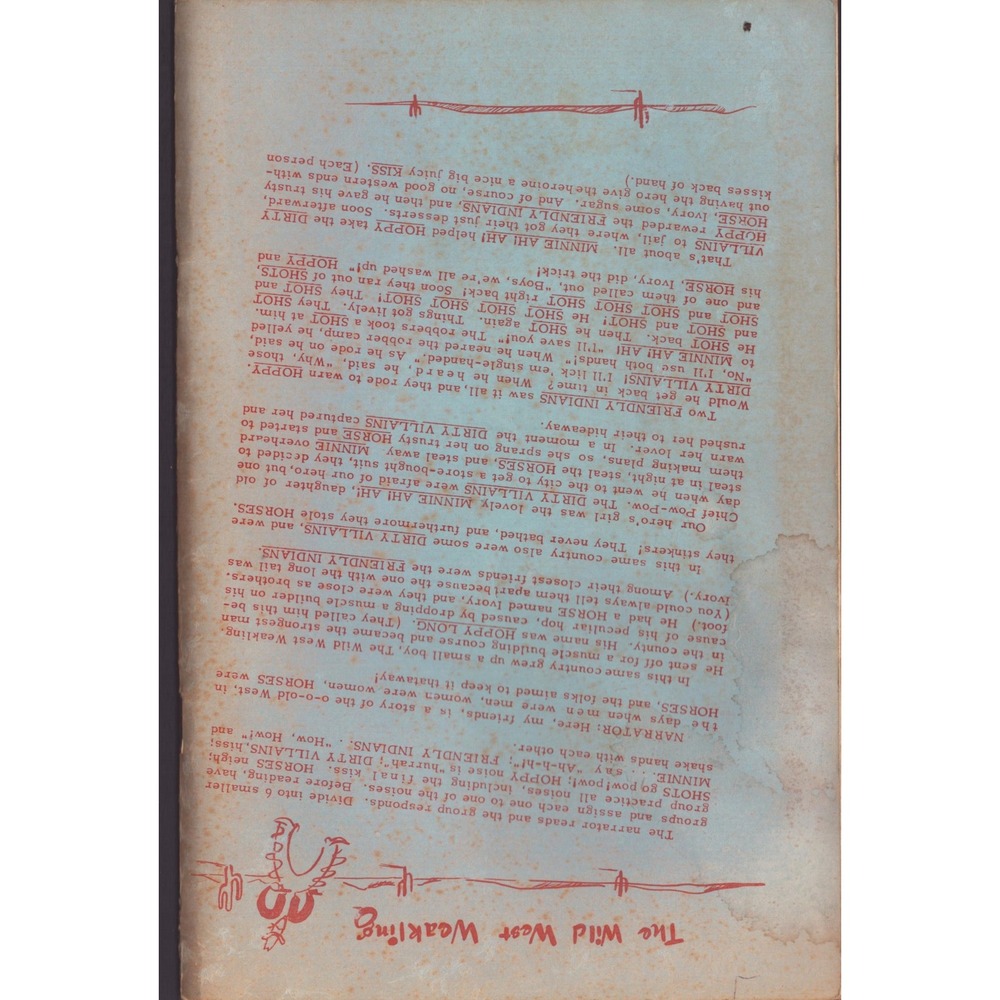 The Wild West Weakling
The narrator reads and the group responds. Divide into 6 smaller
groups and assign each one to one of the noises. Before reading, have
group practice all noises, including the final kiss. HORSES neigh;
SHOTS go pow! pow!; HOPPY noise is "hurrah"; DIRTY VILLAINS, hiss;
MINNIE. . . . say "Ah-h-h!"; FRIENDLY INDIANS. . "How, How!" and
shake hands with each other.
NARRATOR: Here, my friends, is a story of the o-o-old West, in
the days when men were men, women were women, HORSES were
HORSES, and the folks aimed to keep it thataway!
In this same country grew up a small boy, The Wild West Weakling.
He sent off for a muscle building course and became the strongest man
in the county. His name was HOPPY LONG. (They called him this be-
cause of his peculiar hop, caused by dropping a muscle builder on his
foot.) He had a HORSE named Ivory, and they were close as brothers.
(You could always tell them apart because the one with the long tail was
Ivory.) Among their closest friends were the FRIENDLY INDIANS.
In this same country also were some DIRTY VILLAINS, and were
they stinkers! They never bathed, and furthermore they stole HORSES.
Our hero's girl was the lovely MINNIE AH! AH!, daughter of old
Chief Pow-Pow. The DIRTY VILLAINS were afraid of our hero, but one
day when he went to the city to get a store-bought suit, they decided to
steal in at night, steal the HORSES, and steal away. MINNIE overheard
them making plans, so she sprang on her trusty HORSE and started to
warn her lover. In a moment the DIRTY VILLAINS captured her and
rushed her to their hideaway.
Two FRIENDLY INDIANS saw it all, and they rode to warn HOPPY.
Would he get back in time? When he heard, he said, "Why, those
DIRTY VILLAINS! I'll lick 'em single-handed." As he rode on he said,
"No, I'll use both hands!" When he neared the robber camp, he yelled
to MINNIE AH! AH! "I'll save you!" The robbers took a SHOT at him.
He SHOT back. Then he SHOT again. Things got lively. They SHOT
and SHOT and SHOT! He SHOT SHOT SHOT SHOT! They SHOT and
SHOT and SHOT SHOT SHOT right back! Soon they ran out of SHOTS,
and one of them called out, "Boys, we're all washed up!" HOPPY and
his HORSE, Ivory, did the trick!
That's about all. MINNIE AH! AH! helped HOPPY take the DIRTY
VILLAINS to jail, where they got their just desserts. Soon afterward,
HOPPY rewarded the FRIENDLY INDIANS, and then he gave his trusty
HORSE, Ivory, some sugar. And of course, no good western ends with-
out having the hero give the heroine a nice big juicy KISS. (Each person
kisses back of hand.)